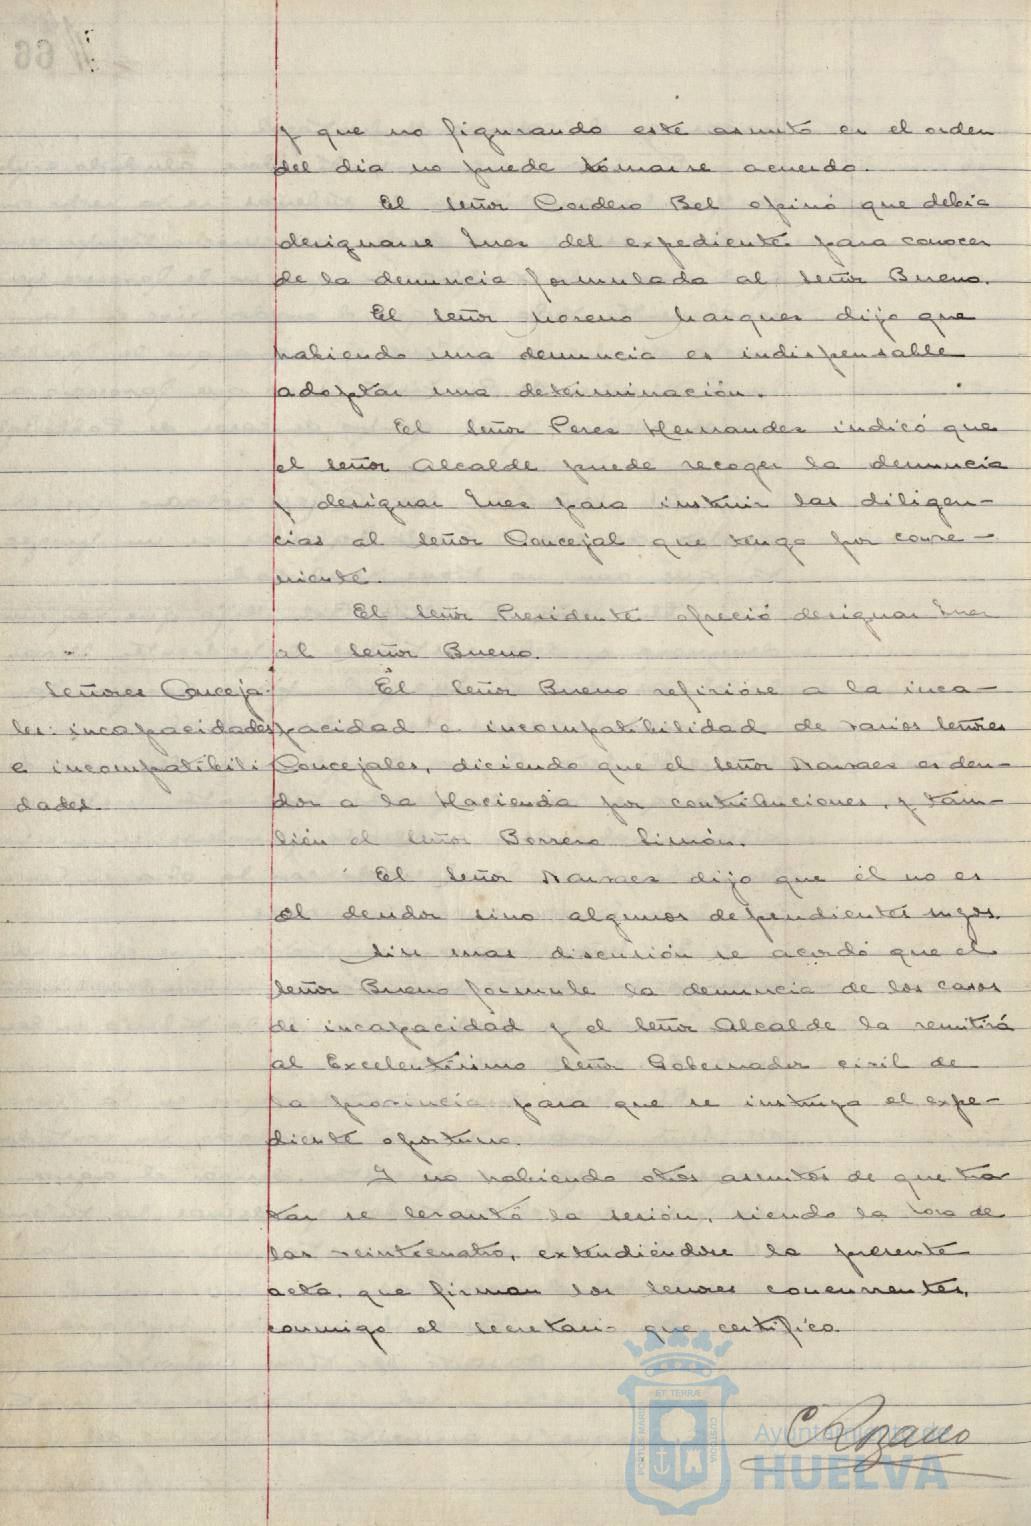 y que no figurando este asunto en el orden
del dia no puede tomarse acuerdo.
El señor Cordero Bel opinó que debia
designarse Juez del expediente para conocer
de la denuncia formulada al señor Bueno.
El señor Moreno Marquez dijo que
habiendo una denuncia es indispensable
adoptar una determinación.
El señor Perez Hernandez indicó que
el señor Alcalde puede recoger la denuncia
y designar Juez para instruir las diligen-
cias al señor Concejal que tenga por conve-
niente.
El señor Presidente ofreció designar Juez
al señor Bueno.
Señores Conceja-
les: incapacidades
e incompatibili
dades.
El señor Bueno refirióse a la inca-
pacidad e incompatibilidad de varios señores
Concejales, diciendo que el señor Narvaez es deu-
dor a la Hacienda por contribuciones, y tam-
bién el señor Borrero Limón.
El señor Narvaez dijo que él no es
el deudor sino algunos dependientes suyos.
Sin mas discusión se acordó que el
señor Bueno formule la denuncia de los casos
de incapacidad y el señor Alcalde la remitirá
al Excelentísimo señor Gobernador civil de
la provincia para que se instruya el expe-
diente oportuno.
Y no habiendo otros asuntos de que tra-
tar se levantó la sesión, siendo la hora de
las veinticuatro, extendiéndose la presente
acta, que firman los señores concurrentes,
conmigo el secretario que certifico.
ET TERRÆ
PORTUS MARIS
CUSTODIA
Ayuntamiento de
HUELVA